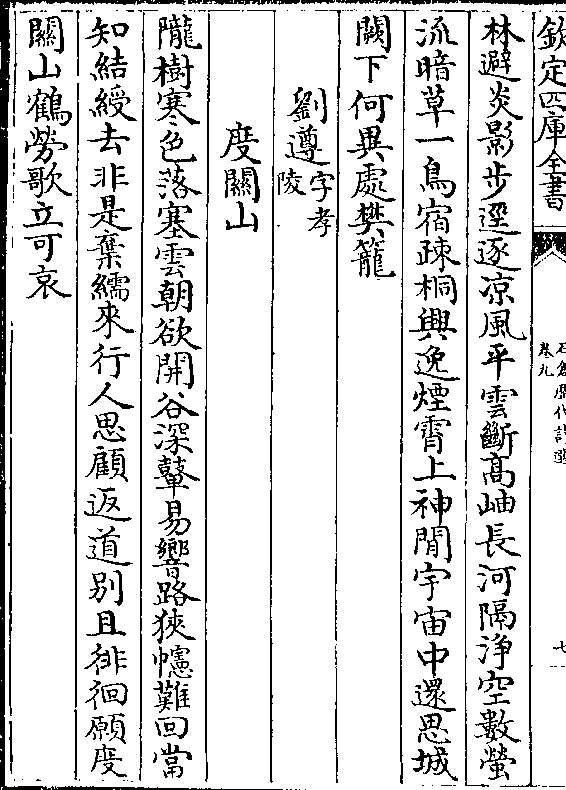 欽定四庫全書
卷九
七
林避炎影步逕逐凉風平雲斷高岫長河隔淨空數螢
流暗草一鳥宿疎桐興逸煙霄上神閒宇宙中還思城
闕下何異處樊籠
劉遵字孝陵
度關山
隴樹寒色落塞雲朝欲開谷深鼙易響路狹幰難回當
知結綬去非是棄繻來行人思顧返道别且徘徊願度
關山鶴勞歌立可哀